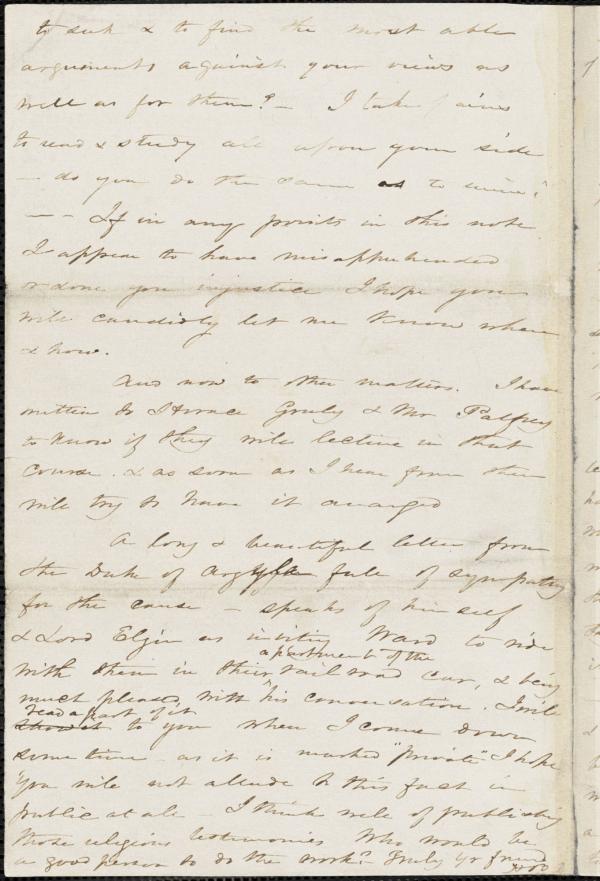 to seek & to find the most able
arguments against your views as
well as for them? – I take pains
to read & study all upon your side
– do you do the same as to mine?
– – If in any points in this note
I appear to have misapprehended
or done you injustice I hope you
will candidly let me know where
& how.
And now to other matters. I have
written to Horace Greely & Mr Palfrey
to know if they will lecture in that
course. & as soon as I hear from them
will try to have it arranged
A long & beautiful letter from
the Duke of Argyle full of sympathy
for the cause – speaks of himself
& Lord Elgin as inviting Ward to ride
with them in their apartment of the rail road car, & being
much pleased with his conversation. I will
read a part of it to you when I come down
some time – as it is marked "private" I hope
you will not allude to this fact in
public at all – I think well of publishing
those religious testimonies Who would be
a good person to do the work? – Truly yr friend